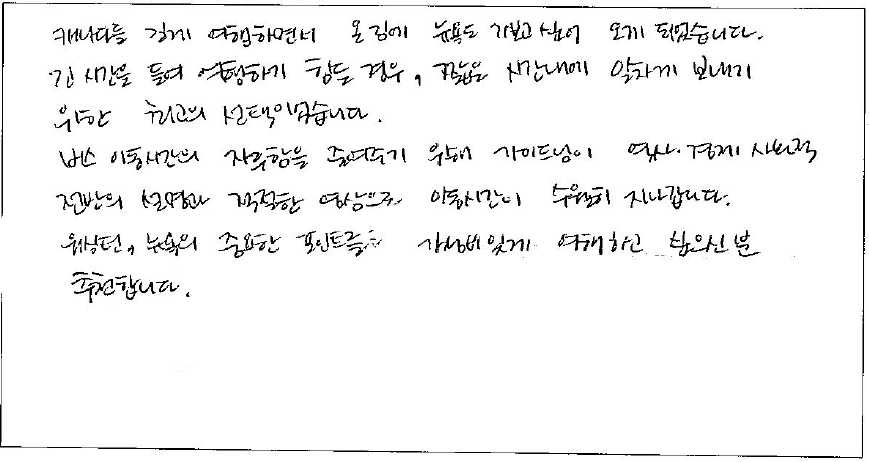 캐나다를 길게 여행하면서 온김에 뉴욕도 가보고 싶어 오게 되었습니다.
긴 시간을 들여 여행하기 힘들 경우, 짧은 시간내에 알차게 보내기
위한 최고의 선택이었습니다.
버스 이동시간의 지루함을 줄여주기 위해 가이드님이 역사·경제 사회적
전반의 설명과 적절한 영상으로 이동시간이 수월히 지나갑니다.
워싱턴, 뉴욕의 중요한 포인트들을 가성비있게 여행하고 싶으신 분
추천합니다.